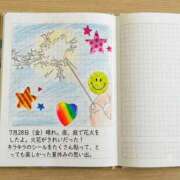 7月28日（金）晴れ。夜、庭で花火を
したよ。火花がきれいだった！
キラキラのシールをたくさん貼って、と
っても楽しかった夏休みの思い出。